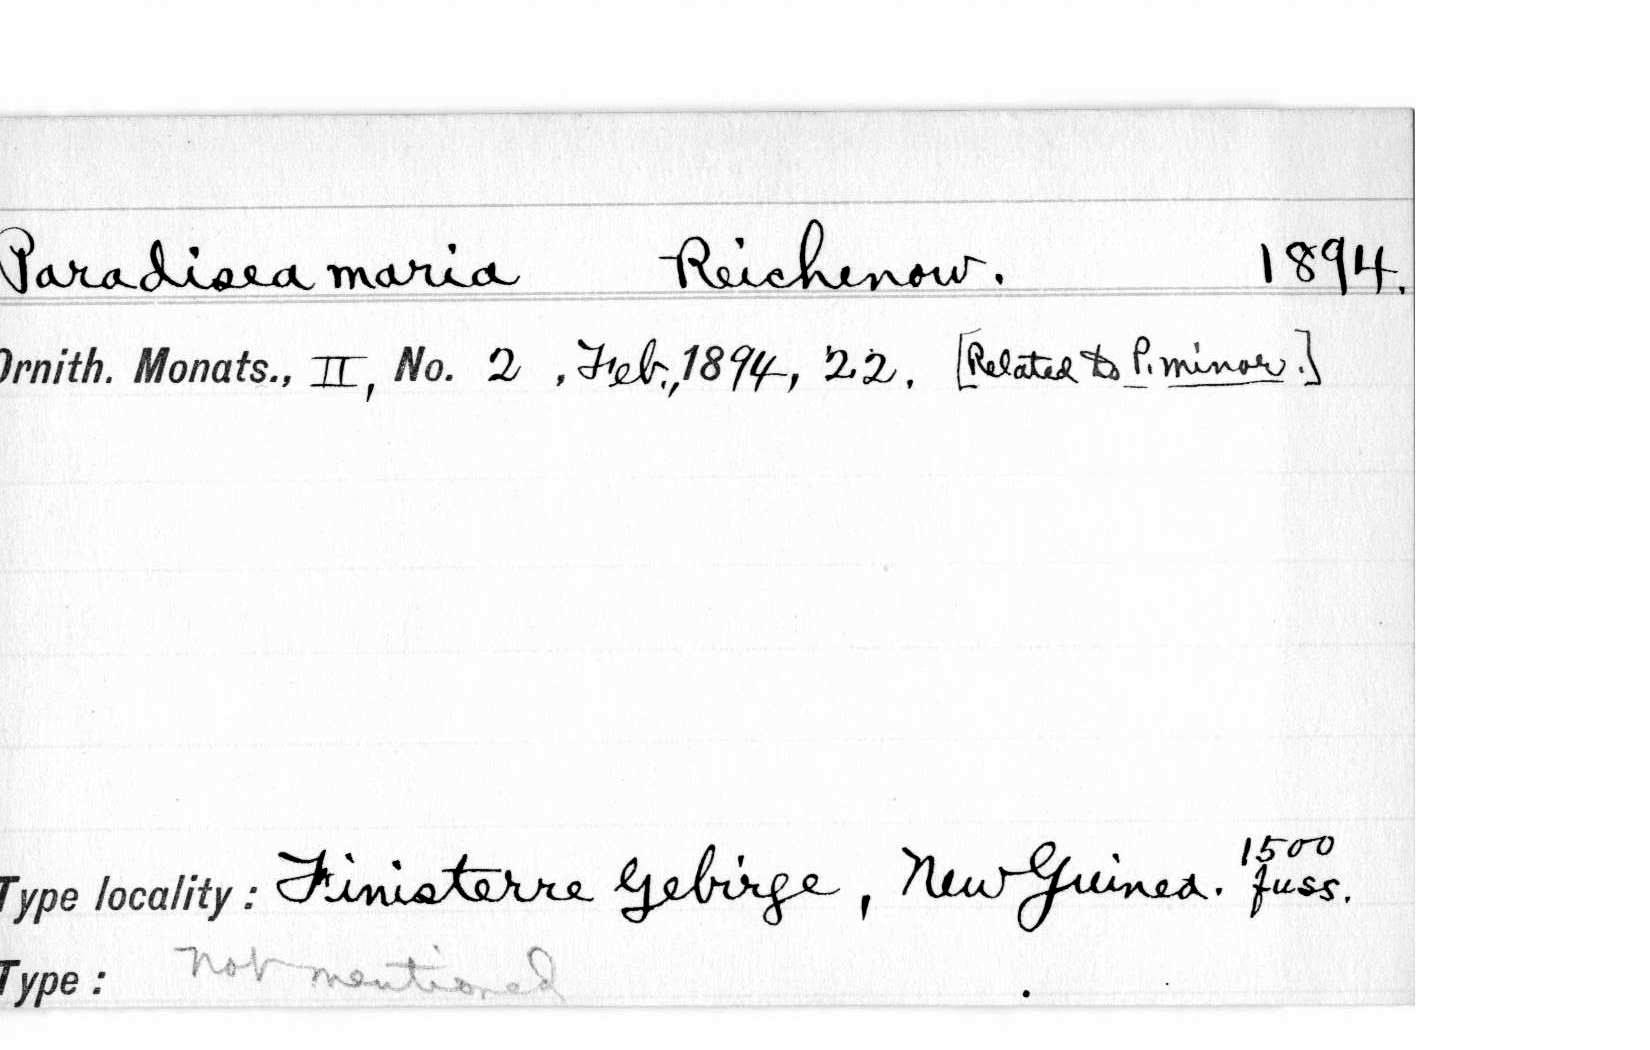 Paradisea maria Reichenow. 1894.
Ornith. Monats., II, No. 2 , Feb., 1894, 22. [Related to P. minor.]
Type locality: Finisterre Gebirge, New Guinea. 1500 fuss.
Type: not mentioned